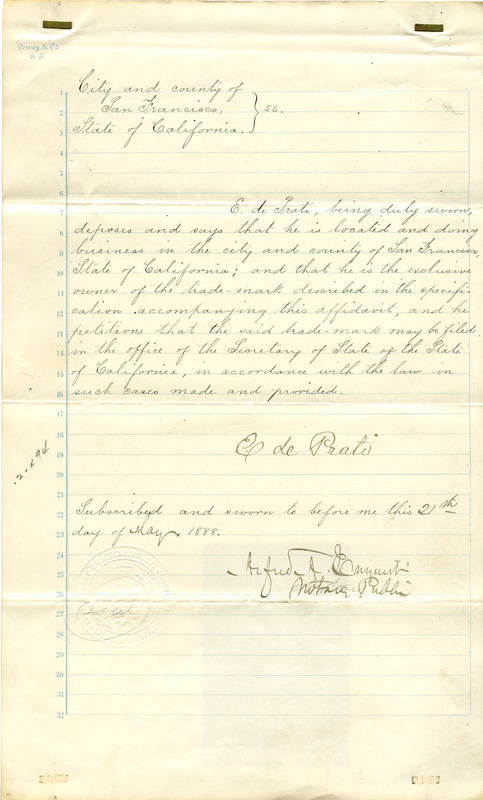 City and county of
San Francisco, } ss.
State of California.
E. de Prati, being duly sworn,
deposes and says that he is located and doing
business in the city and county of San Francisco,
State of California; and that he is the exclusive
owner of the trade-mark described in the specifi-
cation accompanying this affidavit, and he
petitions that the said trade-mark may be filed
in the office of the Secretary of State of the State
of California, in accordance with the law in
such cases made and provided.
E de Prati
Subscribed and sworn to before me this 21th
day of May, 1888.
Alfred A. Enquist
Notary Public
Seal
1
2
3
4
5
6
7
8
9
10
11
12
13
14
15
16
17
18
19
20
21
22
23
24
25
26
27
28
29
30
31
32